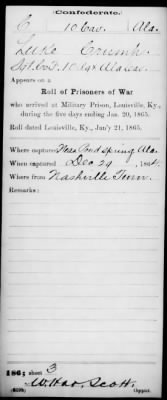 Confederate.
C 10 Cav. Ala.
Luke Crumb
Sgt. Co. F. 10 Reg Ala Cav.
Appears on a
Roll of Prisoners of War
who arrived at Military Prison, Louisville, Ky.,
during the five days ending Jan. 20, 1865.
Roll dated Louisville, Ky., Jan'y 21, 1865.
Where captured Near Pond Spring Ala
When captured Dec 29, 1864.
Where from Nashville Tenn.
Remarks:
186; sheet 3
Scott.
Copyist.